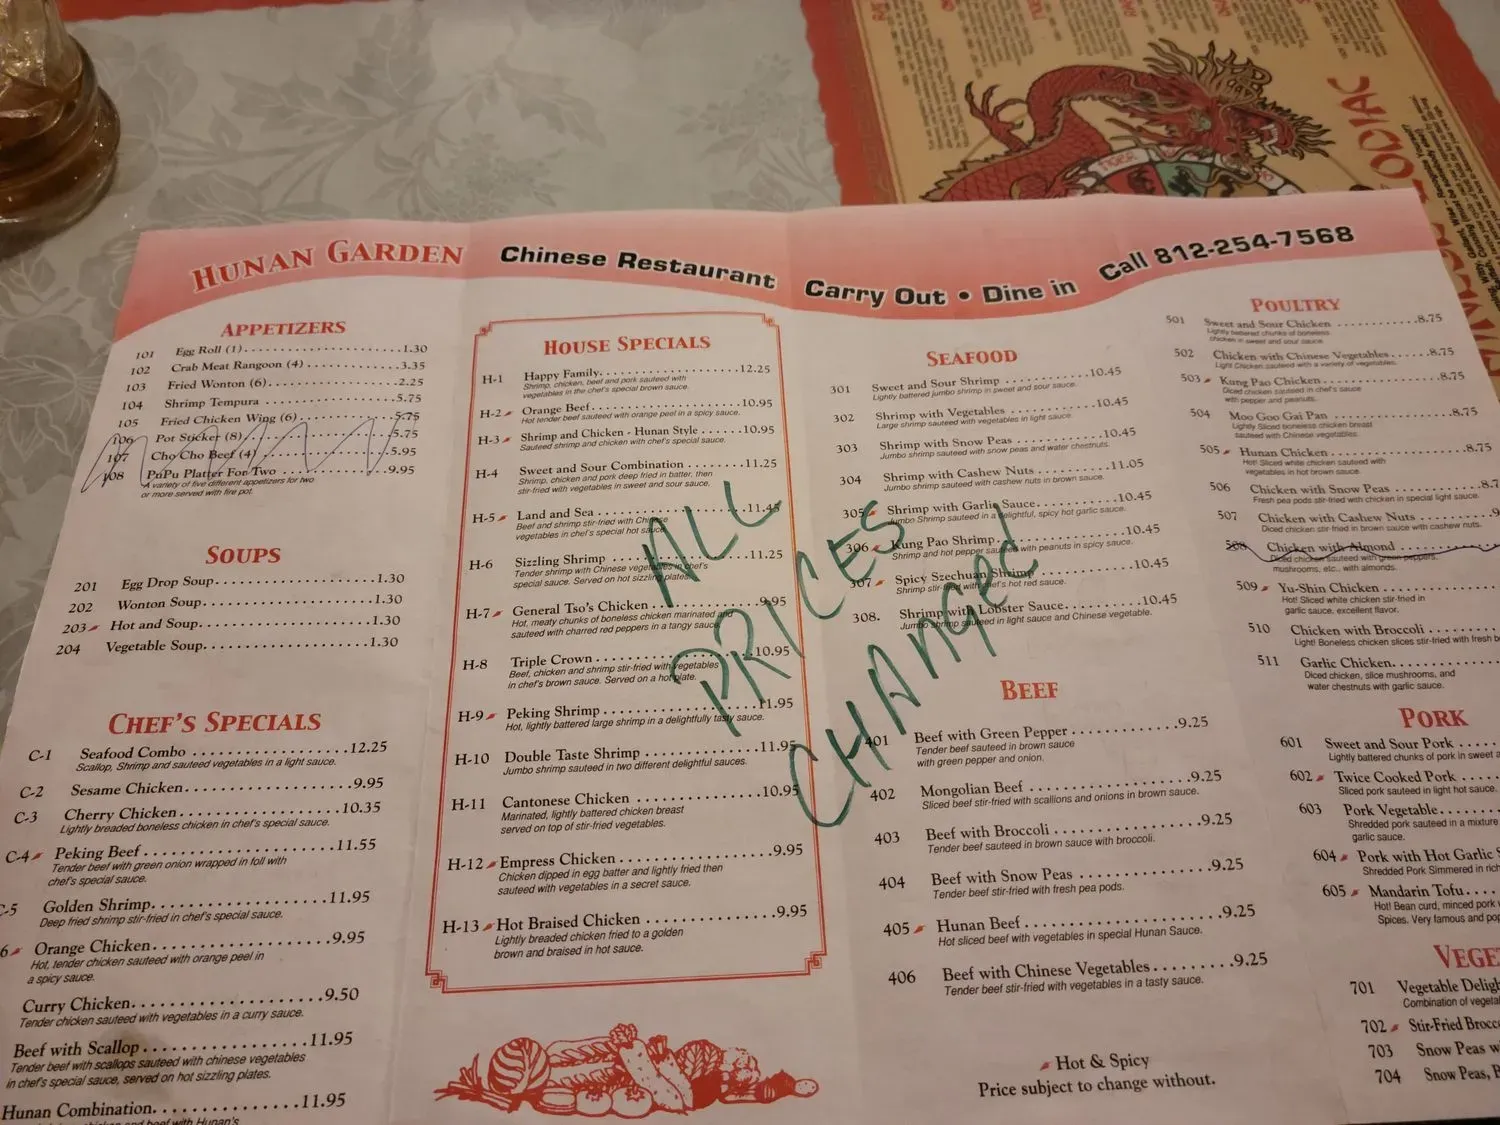 HUNAN GARDEN Chinese Restaurant Carry Out • Dine in Call 812-254-7568
APPETIZERS
101 Egg Roll (1) 1.30
102 Crab Meat Rangoon (4) 3.35
103 Fried Wonton (6) 2.25
104 Shrimp Tempura 5.75
105 Fried Chicken Wing (6) 5.75
106 Pot Sticker (8) 5.75
107 Cho Cho Beef (4) 5.95
108 PuPu Platter For Two 9.95
A variety of five different appetizers for two
or more served with fire pot.
SOUPS
201 Egg Drop Soup 1.30
202 Wonton Soup 1.30
203 Hot and Soup 1.30
204 Vegetable Soup 1.30
CHEF'S SPECIALS
C-1 Seafood Combo 12.25
Scallop, Shrimp and sauteed vegetables in a light sauce.
C-2 Sesame Chicken 9.95
C-3 Cherry Chicken 10.35
Lightly breaded boneless chicken in chef's special sauce.
C-4 Peking Beef 11.55
Tender beef with green onion wrapped in foll with
chef's special sauce.
C-5 Golden Shrimp 11.95
Deep fried shrimp stir-fried in chef's special sauce.
6 Orange Chicken 9.95
Hot, tender chicken sauteed with orange peel in
a spicy sauce.
Curry Chicken 9.50
Tender chicken sauteed with vegetables in a curry sauce.
Beef with Scallop 11.95
Tender beef with scallops sauteed with chinese vegetables
in chef's special sauce, served on hot sizzling plates.
Hunan Combination 11.95
HOUSE SPECIALS
H-1 Happy Family 12.25
Shrimp, chicken, beef and pork sauteed with
vegetables in the chef's special brown sauce.
H-2 Orange Beef 10.95
Hot tender beef sauteed with orange peel in a spicy sauce.
H-3 Shrimp and Chicken - Hunan Style 10.95
Sauteed shrimp and chicken with chef's special sauce.
H-4 Sweet and Sour Combination 11.25
Shrimp, chicken and pork deep fried in batter, then
stir-fried with vegetables in sweet and sour sauce.
H-5 Land and Sea 11.45
Beef and shrimp stir-fried with Chinese
vegetables in chef's special hot sauce.
H-6 Sizzling Shrimp 11.25
Tender shrimp with Chinese vegetables in chef's
special sauce. Served on hot sizzling plates.
H-7 General Tso's Chicken 9.95
Hot, meaty chunks of boneless chicken marinated and
sauteed with charred red peppers in a tangy sauce.
H-8 Triple Crown 10.95
Beef, chicken and shrimp stir-fried with vegetables
in chef's brown sauce. Served on a hot plate.
H-9 Peking Shrimp 11.95
Hot, lightly battered large shrimp in a delightfully tasty sauce.
H-10 Double Taste Shrimp 11.95
Jumbo shrimp sauteed in two different delightful sauces.
H-11 Cantonese Chicken 10.95
Marinated, lightly battered chicken breast
served on top of stir-fried vegetables.
H-12 Empress Chicken 9.95
Chicken dipped in egg batter and lightly fried then
sauteed with vegetables in a secret sauce.
H-13 Hot Braised Chicken 9.95
Lightly breaded chicken fried to a golden
brown and braised in hot sauce.
ALL
PRICES
CHANGED
SEAFOOD
301 Sweet and Sour Shrimp 10.45
Lightly battered jumbo shrimp in sweet and sour sauce.
302 Shrimp with Vegetables 10.45
Large shrimp sauteed with vegetables in light sauce.
303 Shrimp with Snow Peas 10.45
Jumbo shrimp sauteed with snow peas and water chestnuts.
304 Shrimp with Cashew Nuts 11.05
Jumbo shrimp sauteed with cashew nuts in brown sauce.
305 Shrimp with Garlic Sauce 10.45
Jumbo Shrimp sauteed in a delightful, spicy hot garlic sauce.
306 Kung Pao Shrimp 10.45
Shrimp and hot pepper sauteed with peanuts in spicy sauce.
307 Spicy Szechuan Shrimp 10.45
Shrimp stir-fried with chef's hot red sauce.
308. Shrimp with Lobster Sauce 10.45
Jumbo shrimp sauteed in light sauce and Chinese vegetable.
BEEF
401 Beef with Green Pepper 9.25
Tender beef sauteed in brown sauce
with green pepper and onion.
402 Mongolian Beef 9.25
Sliced beef stir-fried with scallions and onions in brown sauce.
403 Beef with Broccoli 9.25
Tender beef sauteed in brown sauce with broccoli.
404 Beef with Snow Peas 9.25
Tender beef stir-fried with fresh pea pods.
405 Hunan Beef 9.25
Hot sliced beef with vegetables in special Hunan Sauce.
406 Beef with Chinese Vegetables 9.25
Tender beef stir-fried with vegetables in a tasty sauce.
Hot & Spicy
Price subject to change without.
POULTRY
501 Sweet and Sour Chicken 8.75
Lightly battered chunks of boneless
chicken in sweet and sour sauce
502 Chicken with Chinese Vegetables 8.75
Light Chicken sauteed with a variety of vegetables.
503 Kung Pao Chicken 8.75
Diced chicken sauteed in chef's sauce
with pepper and peanuts.
504 Moo Goo Gai Pan 8.75
Lightly Sliced boneless chicken breast
sauteed with Chinese vegetables.
505 Hunan Chicken 8.75
Hot! Sliced white chicken sauteed with
vegetables in hot brown sauce.
506 Chicken with Snow Peas 8.7
Fresh pea pods stir-fried with chicken in special light sauce.
507 Chicken with Cashew Nuts 9
Diced chicken stir-fried in brown sauce with cashew nuts.
508 Chicken with Almond
Diced chicken sauteed with green peppers,
mushrooms, etc., with almonds.
509 Yu-Shin Chicken
Hot! Sliced white chicken stir-fried in
garlic sauce, excellent flavor.
510 Chicken with Broccoli
Light! Boneless chicken slices stir-fried with fresh b
511 Garlic Chicken
Diced chicken, slice mushrooms, and
water chestnuts with garlic sauce.
PORK
601 Sweet and Sour Pork
Lightly battered chunks of pork in sweet a
602 Twice Cooked Pork
Sliced pork sauteed in light hot sauce.
603 Pork Vegetable
Shredded pork sauteed in a mixture
garlic sauce.
604 Pork with Hot Garlic S
Shredded Pork Simmered in rich
605 Mandarin Tofu
Hot! Bean curd, minced pork
Spices. Very famous and pop
VEGE
701 Vegetable Deligh
Combination of vegetal
702 Stir-Fried Brocc
703 Snow Peas w
704 Snow Peas, B